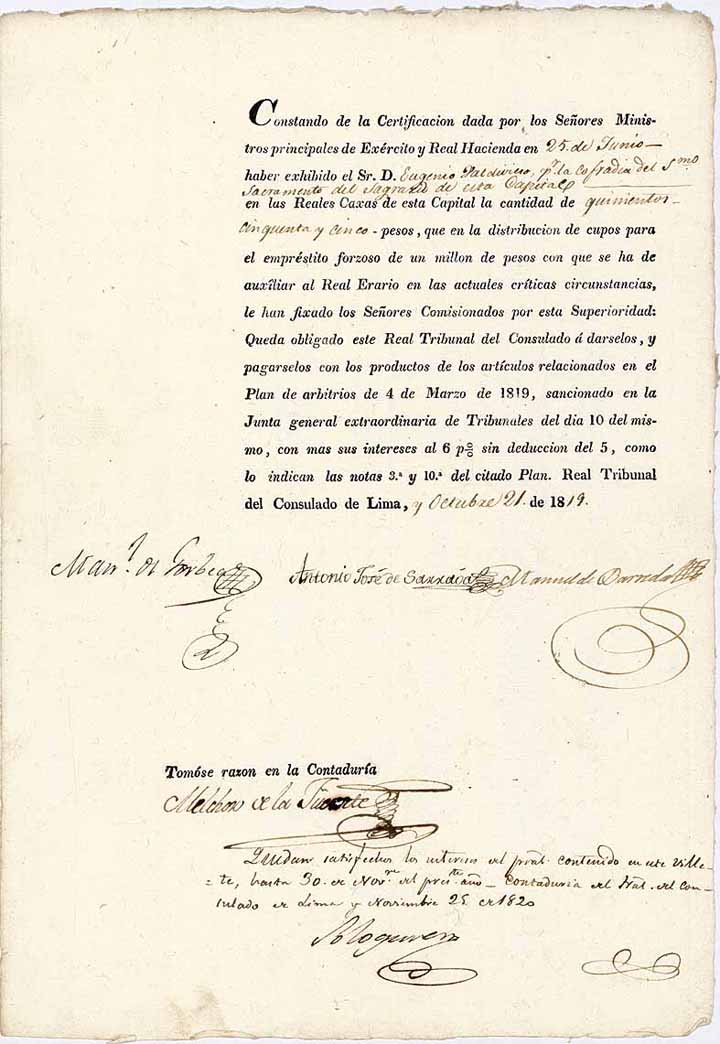 Constando de la Certificacion dada por los Señores Minis-
tros principales de Exército y Real Hacienda en 25 de Junio
haber exhibido el Sr. D. Eugenio Valdivieso, pr. la Cofradia del Smo
Sacramento del Sagrario de esta Capital
en las Reales Caxas de esta Capital la cantidad de quinientos
cinquenta y cinco - pesos, que en la distribucion de cupos para
el empréstito forzoso de un millon de pesos con que se ha de
auxîliar al Real Erario en las actuales críticas circunstancias,
le han fixado los Señores Comisionados por esta Superioridad:
Queda obligado este Real Tribunal del Consulado á darselos, y
pagarselos con los productos de los artículos relacionados en el
Plan de arbitrios de 4 de Marzo de 1819, sancionado en la
Junta general extraordinaria de Tribunales del dia 10 del mis-
mo, con mas sus intereses al 6 p% sin deduccion del 5, como
lo indican las notas 3.ª y 10.ª del citado Plan. Real Tribunal
del Consulado de Lima, y Octubre 21. de 1819.
Man.l de Gorbea Antonio José de Sarraoa Manuel de Barreda
Tomóse razon en la Contaduría
Melchor de la Fuente
Quedan satisfechos los intereses del pral. contenido en este Ville-
=te, hasta 30. de Novre del preste año - Contaduria del Tral. del Con-
sulado de Lima y Noviembre 25 de 1820